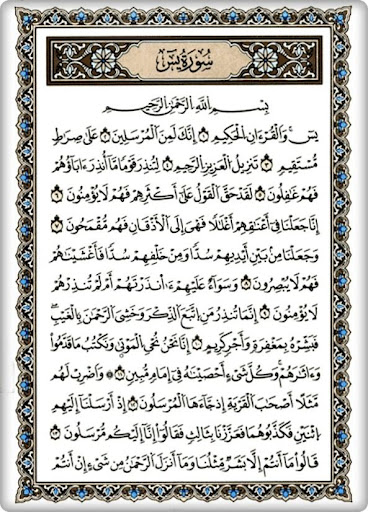 سُورَةُ يسٓ
بِسْمِ اللَّهِ الرَّحْمَٰنِ الرَّحِيمِ
يسٓ ۝ وَالْقُرْءَانِ الْحَكِيمِ ۝ إِنَّكَ لَمِنَ الْمُرْسَلِينَ ۝ عَلَىٰ صِرَاطٍ
مُّسْتَقِيمٍ ۝ تَنزِيلَ الْعَزِيزِ الرَّحِيمِ ۝ لِتُنذِرَ قَوْمًا مَّا أُنذِرَ ءَابَاؤُهُمْ
فَهُمْ غَٰفِلُونَ ۝ لَقَدْ حَقَّ الْقَوْلُ عَلَىٰ أَكْثَرِهِمْ فَهُمْ لَا يُؤْمِنُونَ ۝
إِنَّا جَعَلْنَا فِي أَعْنَٰقِهِمْ أَغْلَٰلًا فَهِيَ إِلَى الْأَذْقَانِ فَهُم مُّقْمَحُونَ ۝
وَجَعَلْنَا مِن بَيْنِ أَيْدِيهِمْ سَدًّا وَمِنْ خَلْفِهِمْ سَدًّا فَأَغْشَيْنَٰهُمْ
فَهُمْ لَا يُبْصِرُونَ ۝ وَسَوَاءٌ عَلَيْهِمْ ءَأَنذَرْتَهُمْ أَمْ لَمْ تُنذِرْهُمْ
لَا يُؤْمِنُونَ ۝ إِنَّمَا تُنذِرُ مَنِ اتَّبَعَ الذِّكْرَ وَخَشِيَ الرَّحْمَٰنَ بِالْغَيْبِ
فَبَشِّرْهُ بِمَغْفِرَةٍ وَأَجْرٍ كَرِيمٍ ۝ إِنَّا نَحْنُ نُحْيِ الْمَوْتَىٰ وَنَكْتُبُ مَا قَدَّمُوا
وَءَاثَٰرَهُمْ وَكُلَّ شَيْءٍ أَحْصَيْنَٰهُ فِي إِمَامٍ مُّبِينٍ ۝ وَاضْرِبْ لَهُم
مَّثَلًا أَصْحَٰبَ الْقَرْيَةِ إِذْ جَاءَهَا الْمُرْسَلُونَ ۝ إِذْ أَرْسَلْنَا إِلَيْهِمُ
اثْنَيْنِ فَكَذَّبُوهُمَا فَعَزَّزْنَا بِثَالِثٍ فَقَالُوا إِنَّا إِلَيْكُم مُّرْسَلُونَ ۝
قَالُوا مَا أَنتُمْ إِلَّا بَشَرٌ مِّثْلُنَا وَمَا أَنزَلَ الرَّحْمَٰنُ مِن شَيْءٍ إِنْ أَنتُمْ